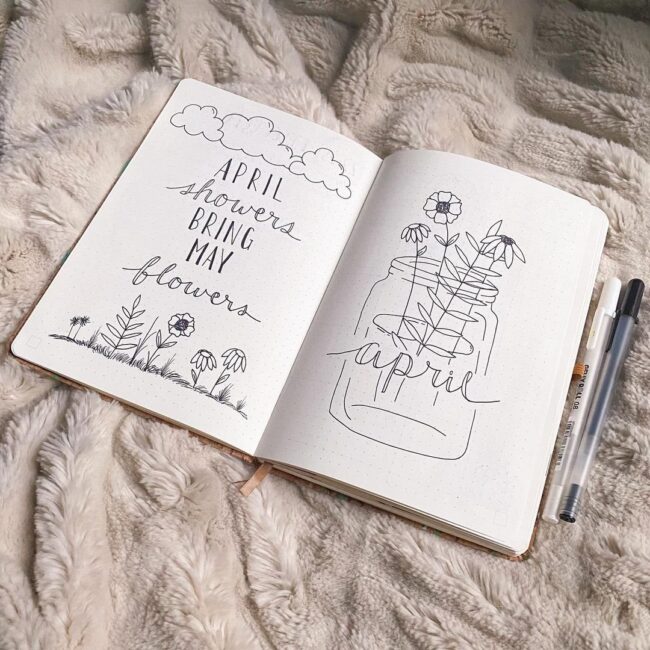 APRIL
showers
BRING
MAY
flowers
april